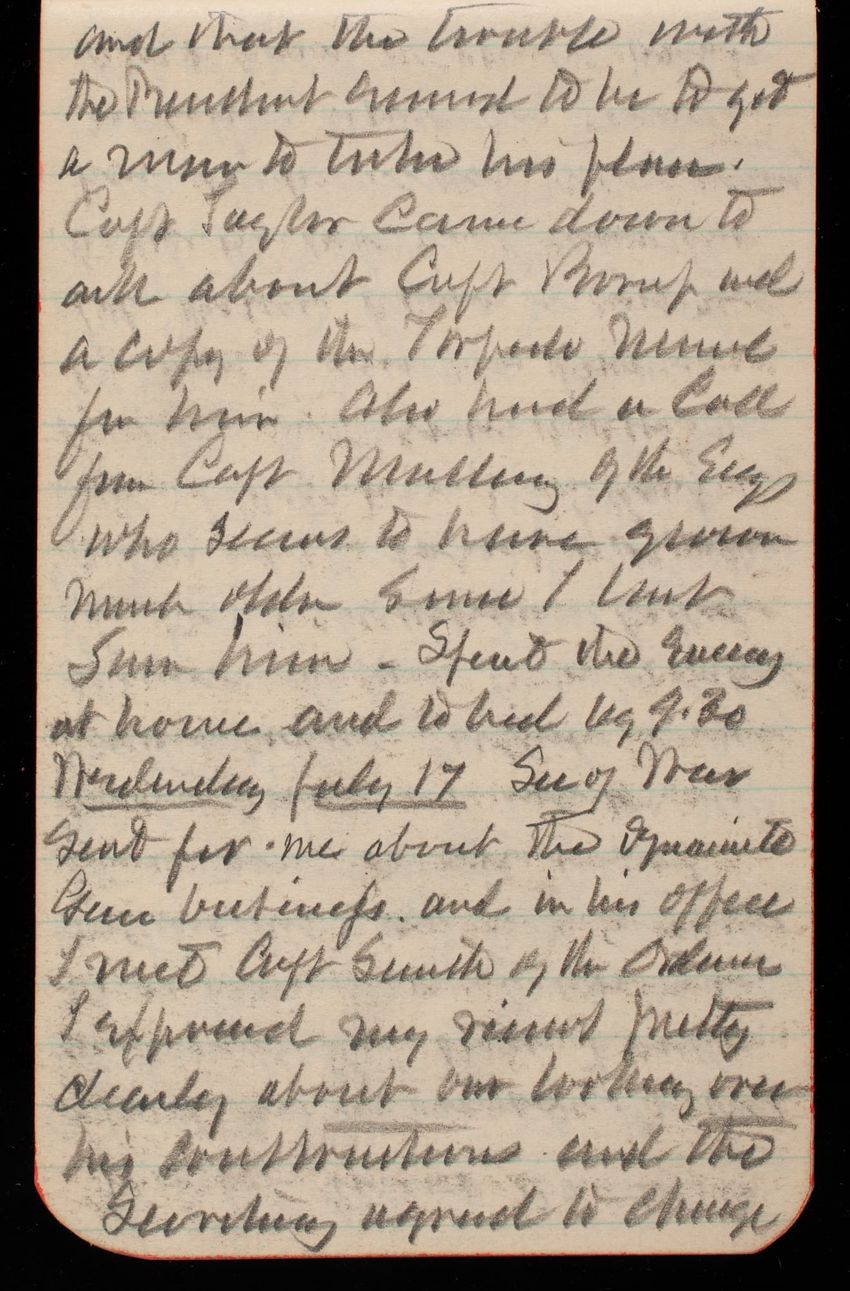 and that the trouble with
the President seemed to be to get
a man to take his place.
Capt Taylor came down to
ask about Capt Borup and
a copy of the Torpedo Manual
for him. Also had a call
from Capt of the Eng
who seems to have grown
much older since I last
saw him - Spent the Evening
at home and to bed by 9.30
Wednesday July 17 Sec of War
sent for me about the dynamite
Gun business. and in his office
I met Capt Smith of the Ordnance
I expressed my views pretty
clearly about our looking over
his constructions and the
Secretary agreed to change